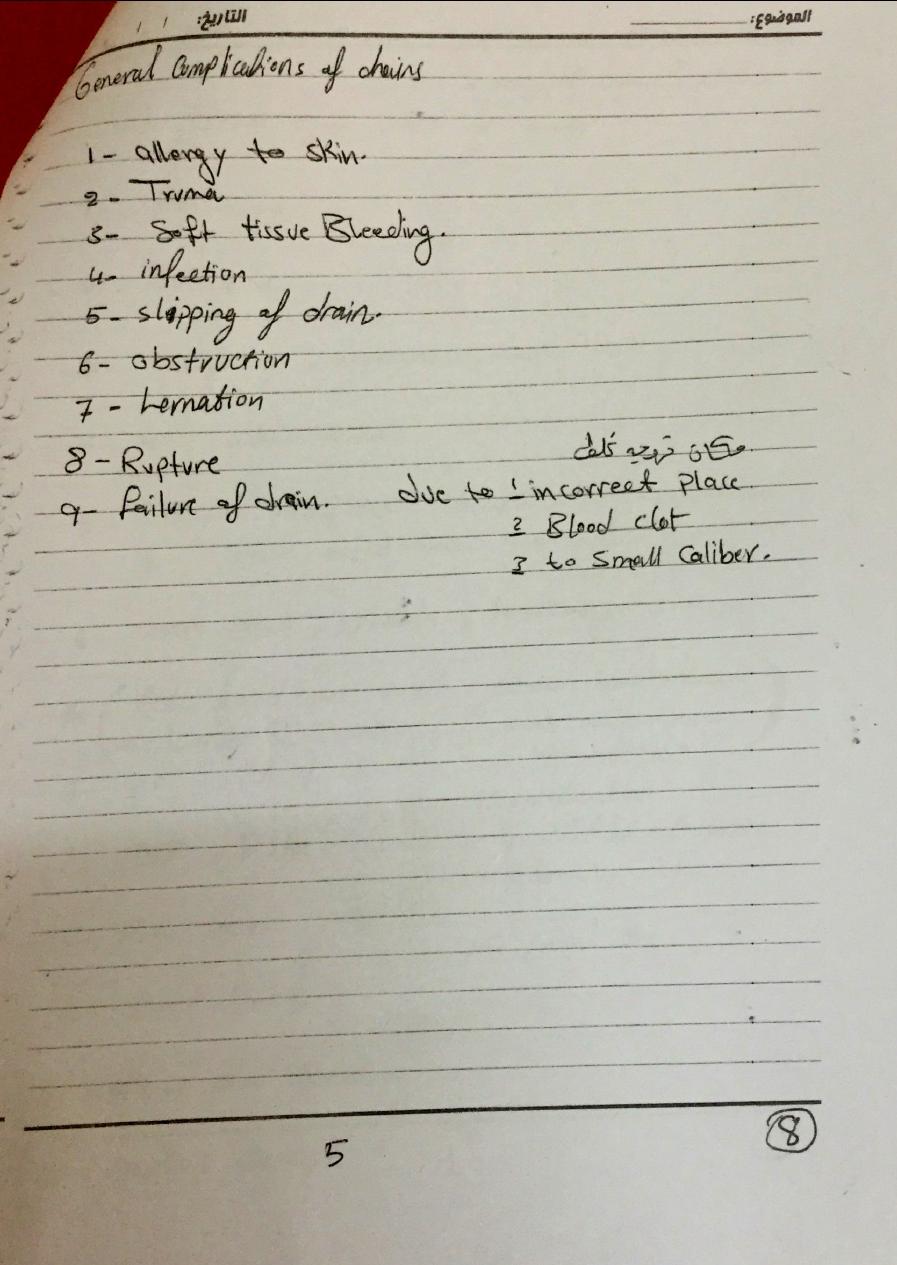 الموضوع: التاريخ: / /
General Complications of drains
1- allergy to skin.
2- Truma
3- Soft tissue Bleeding.
4- infection
5- slipping of drain.
6- obstruction
7- Hernation
8- Rupture
مكان توجيه
9- failure of drain. due to 1 incorrect place
2 Blood clot
3 to small Caliber.
5
8